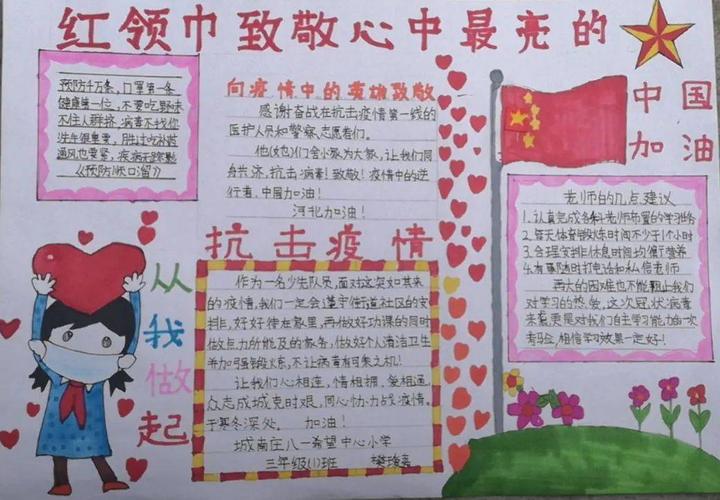 红领巾致敬心中最亮的
预防千万条，口罩第一条
健康第一位，不要吃野味
不住人群挤，病毒不找你
洗手很重要，胜过吃补药
通风也要紧，疾病不跟
《预防顺口溜》
向疫情中的英雄致敬
感谢奋战在抗击疫情第一线的
医护人员和警察、志愿者们。
他(她)们舍小家为大家，让我们同
舟共济，抗击病毒！致敬！疫情中的逆
行者，中国加油！
河北加油！
中国
加油
老师的几点建议
1.认真完成各科老师布置的学习任务
2.每天体育锻炼时间不少于1个小时
3.合理安排休息时间均衡营养
4.有问题随时打电话和私信老师
再大的困难也不能阻止我们
对学习的热爱，这次冠状病毒
来袭更是对我们自主学习能力的一次
考验，相信学习效果一定好！
抗击疫情
从
我
做
起
作为一名少先队员，面对这突如其来
的疫情，我们一定会遵守街道社区的安
排，好好待在家里，再做好功课的同时
做点力所能及的家务，做好个人清洁卫生
并加强锻炼，不让病毒有可乘之机！
让我们心相连，情相拥，爱相通，
众志成城克时艰，同心协力战疫情。
于寒冬深处。 加油！
城南庄八一希望中心小学
三年级(1)班 樊